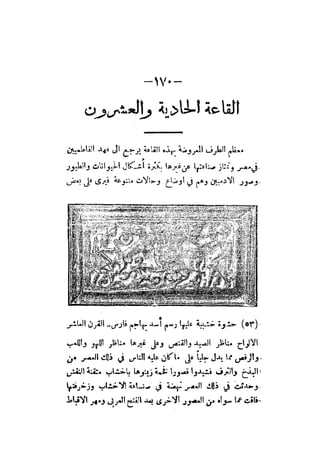 —١٧٠—
القاعة الحادية والعشرون
معظم الطرف المعروضة بهذه القاعة يرجع الى عهد الفاطميين
فى مصر وتمتاز صناعتها عن غيرها بكثرة أشكال الحيوانات والطيور
وصور الآدميين وهم فى اوضاع وحالات متنوعة فيرى على بعض
(٥٣) حشوة خشبية عليها رسم أسد يهاجم فارس ـ القرن العاشر
الالواح مناظر الصيد والقنص وعلى غيرها مناظر اللهو واللعب
والرقص مما يدل جلياً على ما كان عليه الناس فى ذلك العصر من
البذخ والترف فشيدوا قصورا فخمة زينوها باخشاب متقنة النقش
وحدثت فى ذلك العصر نهضة فى صناعة الاخشاب وزخرفتها
فاقت عما سواه من العصور الاخرى بعد الفتح العربى ومهر الاقباط